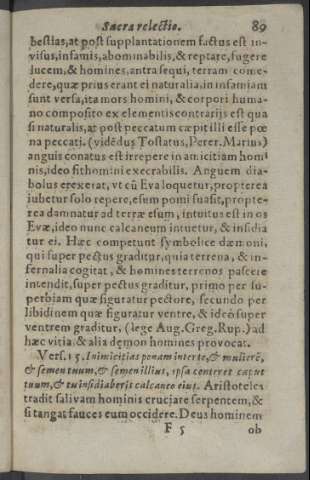 Sacra relectio. 89
bestias, at post supplantationem factus est in-
visus, infamis, abominabilis, & reptare, fugere
lucem, & homines, antra sequi, terram come-
dere, quæ prius erant ei naturalia, in infamiam
sunt versa, ita mors homini, & corpori huma-
no composito ex elementis contrarijs est qua
si naturalis, at post peccatum cæpit illi esse pœ
na peccati. (vidēdus Tostatus, Perer. Marius)
anguis conatus est irrepere in amicitiam homi
nis, ideo fit homini execrabilis. Anguem dia-
bolus erexerat, vt cū Eva loquetur, propterea
iubetur solo repere, esum pomi suasit, propte-
rea damnatur ad terræ esum, intuitus est in os
Evæ, ideo nunc calcaneum intuetur, & insidia
tur ei. Hæc competunt symbolice dæmoni,
qui super pectus graditur, quia terrena, & in-
fernalia cogitat, & homines terrenos pascere
intendit, super pectus graditur, primo per su-
perbiam quæ figuratur pectore, secundo per
libidinem quæ figuratur ventre, & ideo super
ventrem graditur, (lege Aug. Greg. Rup.) ad
hæc vitia, & alia dęmon homines provocat.
Vers. 15. Inimicitias ponam inter te, & mulierē,
& semen tuum, & semen illius, ipsa conteret caput
tuum, & tu insidiaberis calcaneo eius. Aristoteles
tradit salivam hominis cruciare serpentem, &
si tangat fauces eum occidere. Deus hominem
F 5 ob